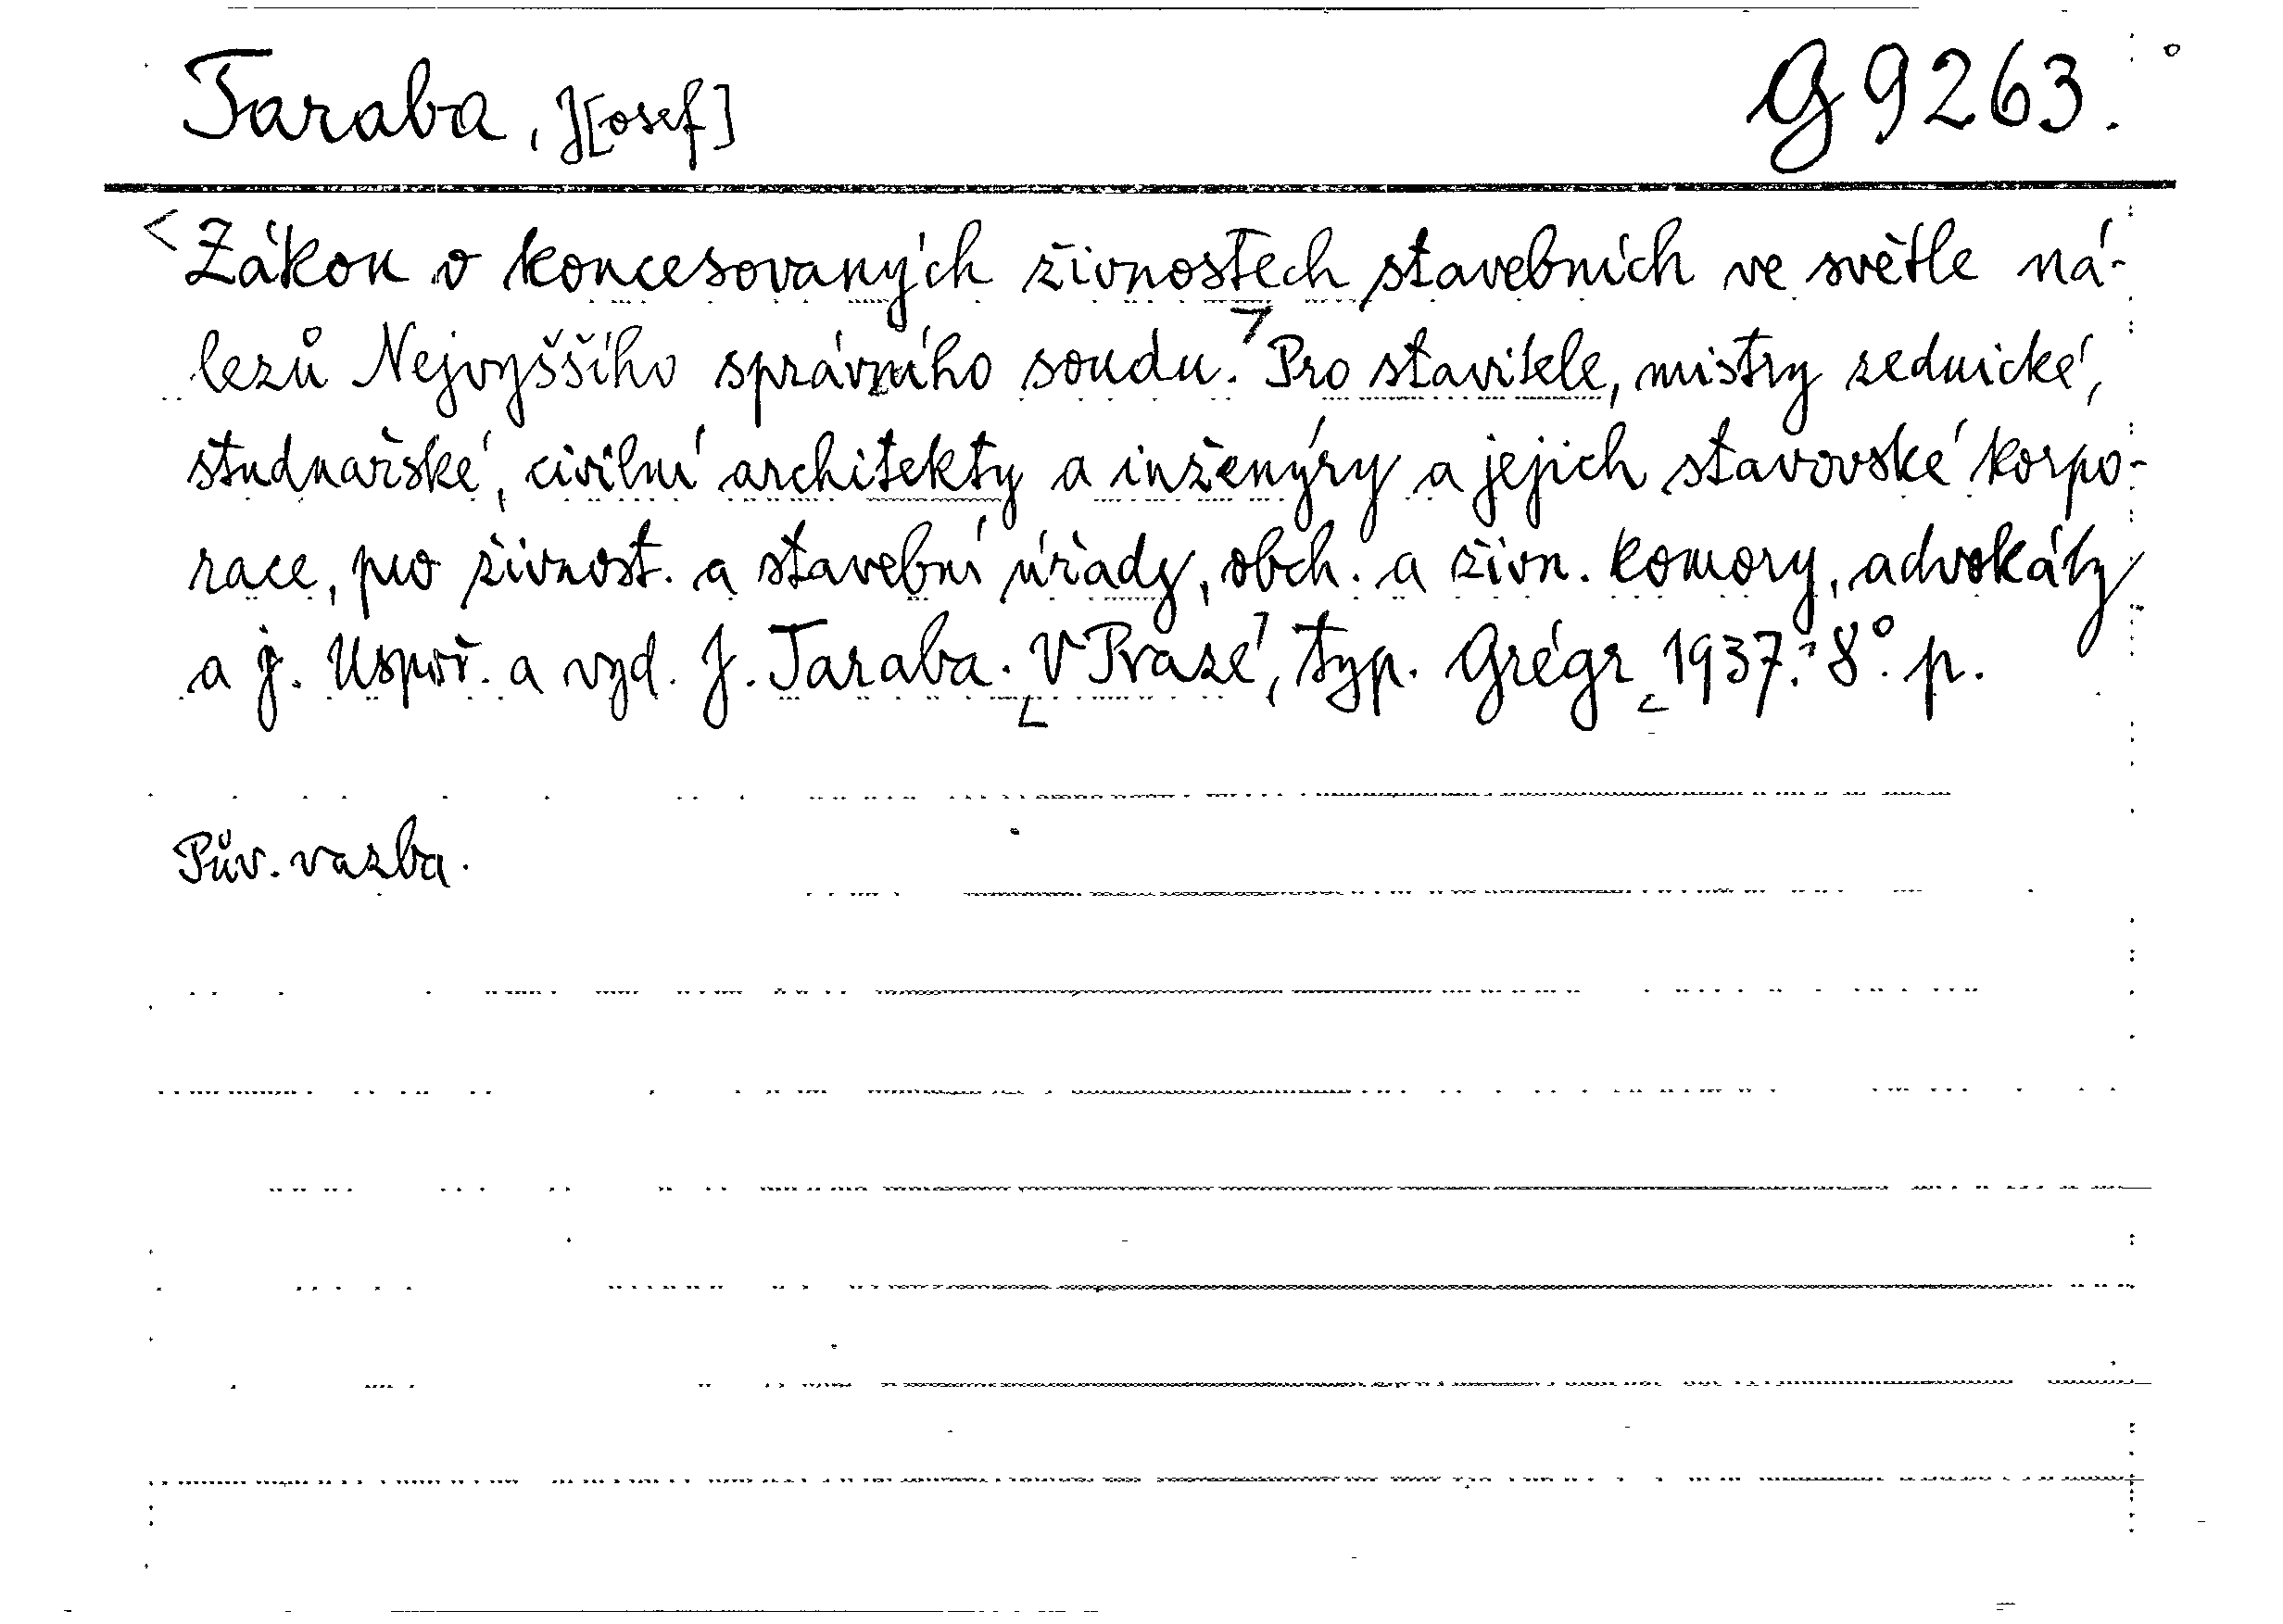 Taraba, J[osef] G 9263.
<Zákon o koncesovaných živnostech stavebních ve světle ná-
lezů Nejvyššího správního soudu.> Pro stavitele, mistry zednické,
studnařské, civilní architekty a inženýry a jejich stavovské korpo-
race, pro živnost. a stavební úřady, obch. a živn. komory, advokáty
a j. Uspoř. a vyd. J. Taraba. V Praze, typ. Grégr 1937. 8° p.
Pův. vazba.